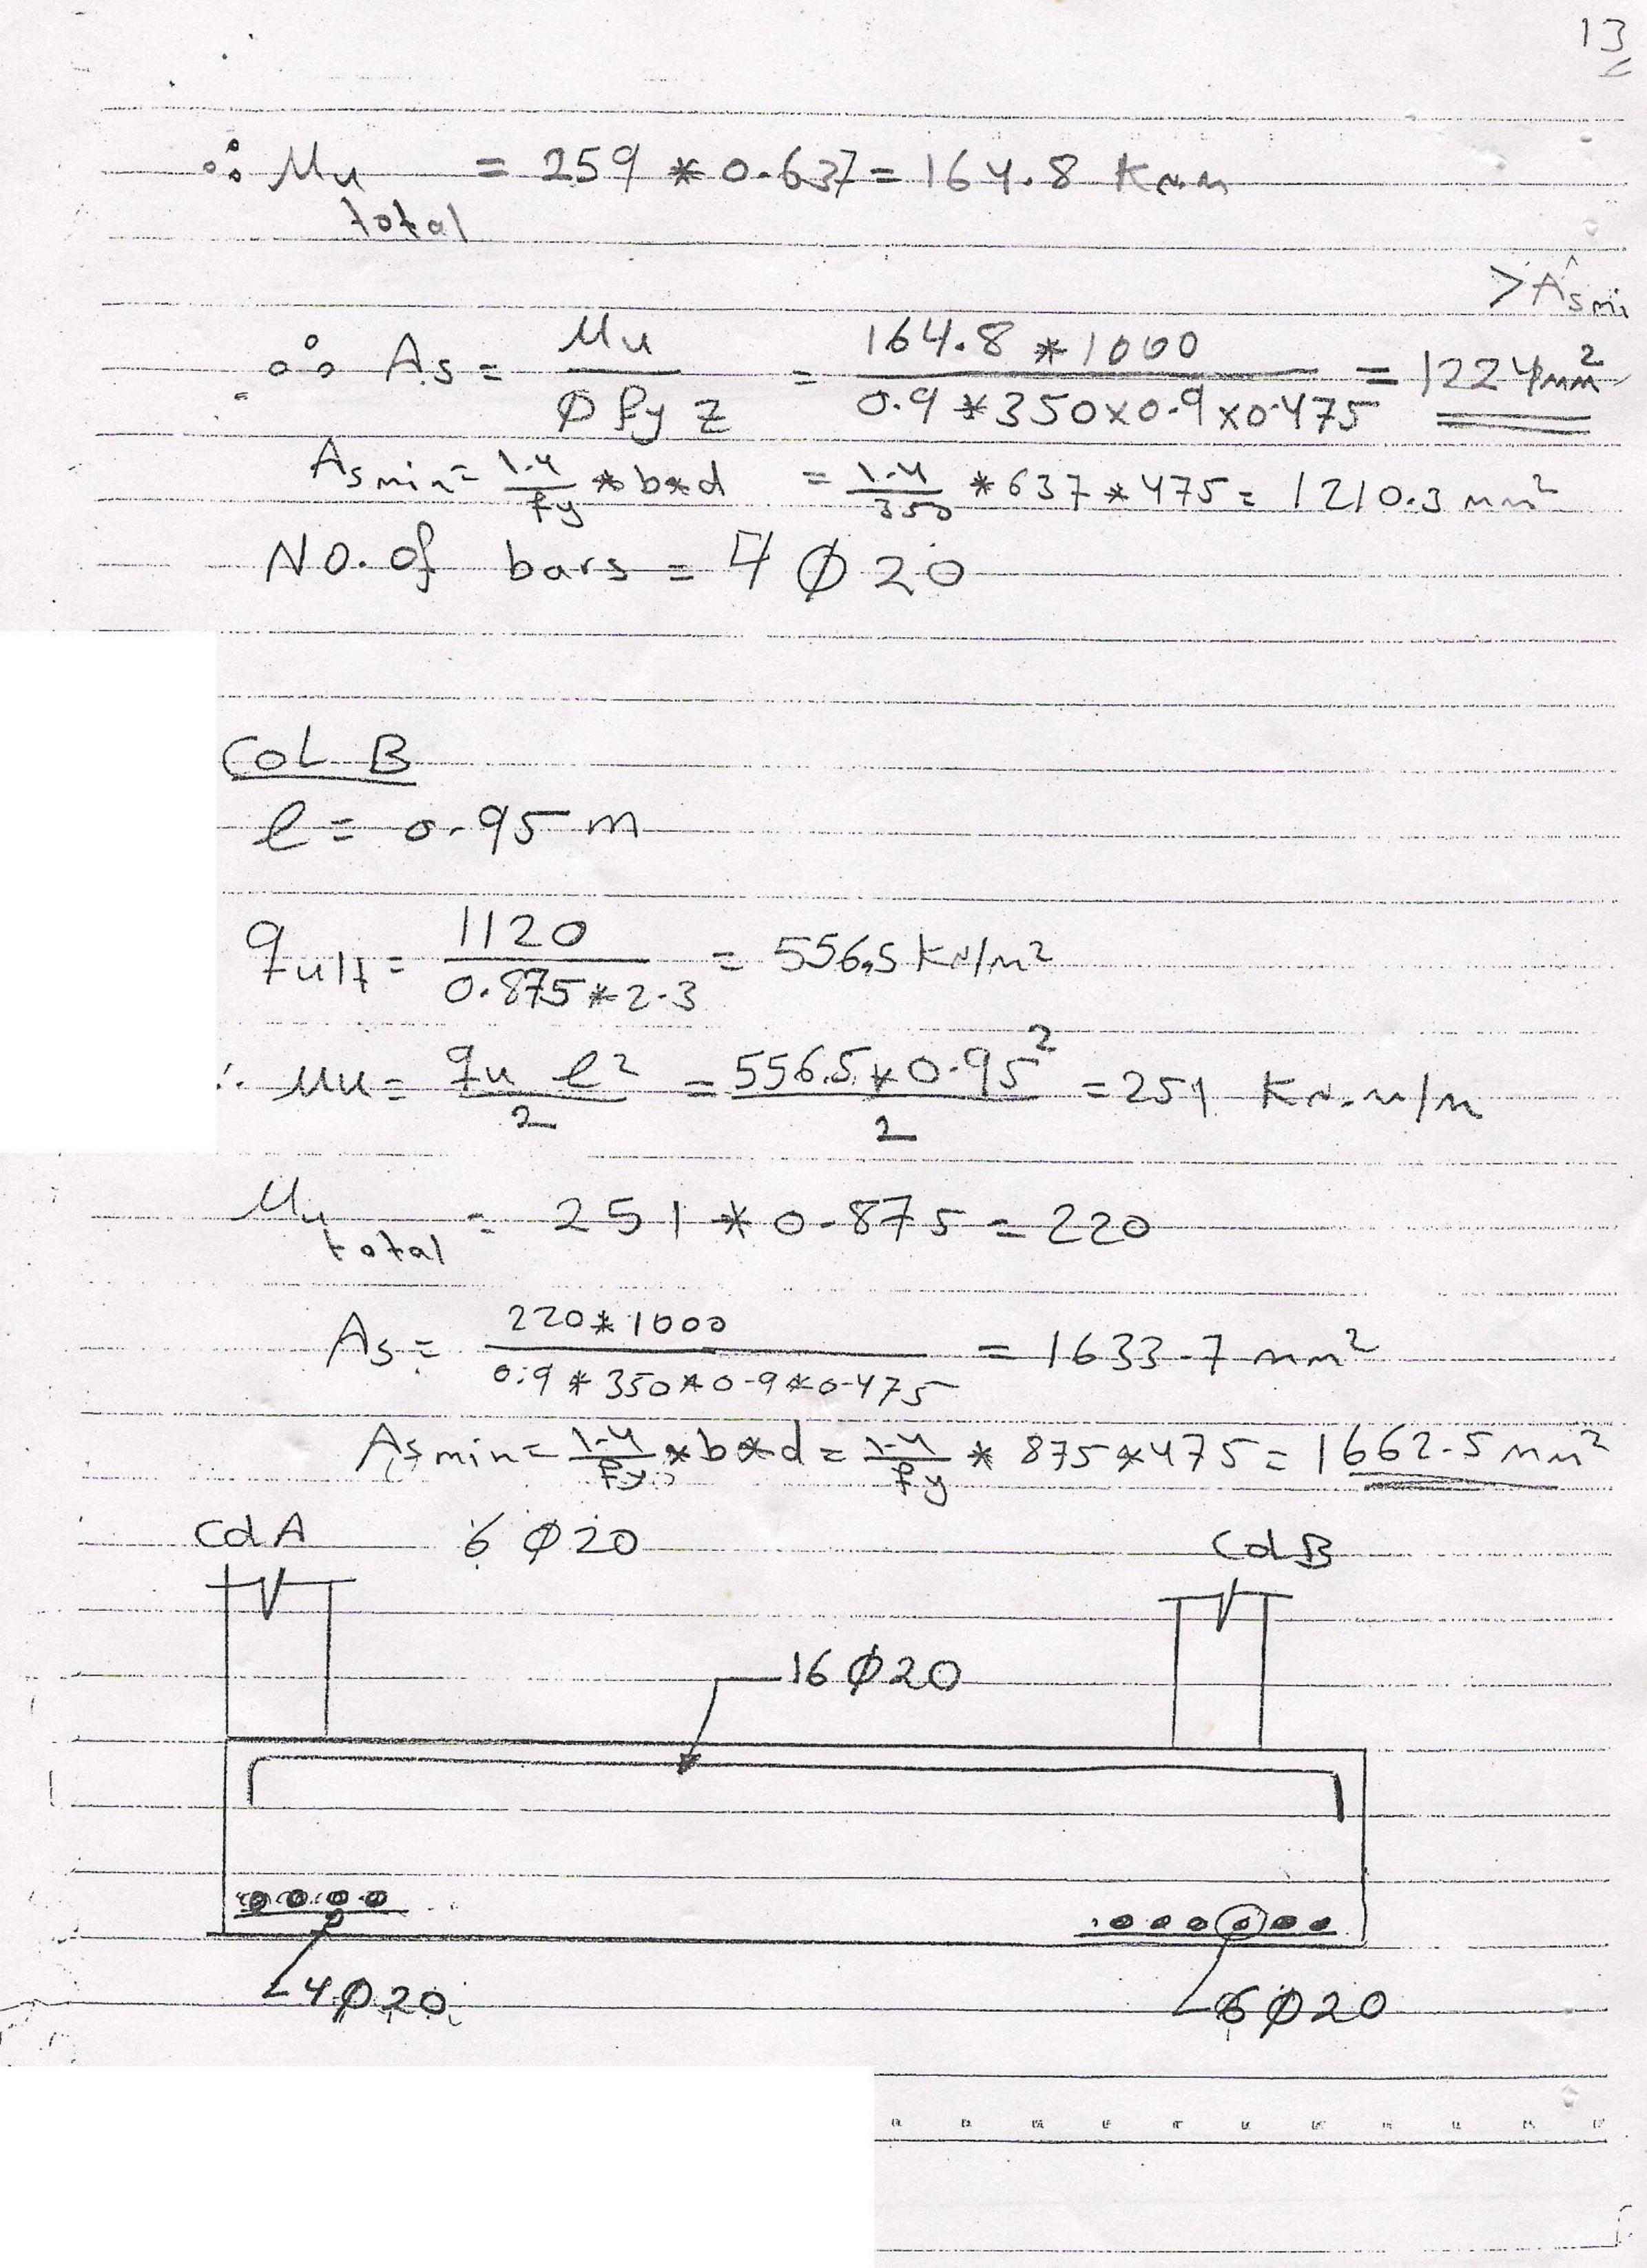 13
∴ Mu total = 259 * 0.637 = 164.8 KN.m
> Asmi
∴ As = Mu / Ø fy z = 164.8 * 1000 / 0.9 * 350 x 0.9 x 0.475 = 1224 mm²
As min = 1.4/fy * b*d = 1.4/350 * 637 * 475 = 1210.3 mm²
NO. of bars = 4 Ø 20
Col B
l = 0.95 m
qult = 1120 / 0.875 * 2.3 = 556.5 KN/m²
∴ Mu = qu l² / 2 = 556.5 * 0.95² / 2 = 251 KN.m/m
Mu total = 251 * 0.875 = 220
As = 220 * 1000 / 0.9 * 350 * 0.9 * 0.475 = 1633.7 mm²
As min = 1.4/fy * b*d = 1.4/fy * 875 * 475 = 1662.5 mm²
Col A 6 Ø 20 Col B
16 Ø 20
4 Ø 20 6 Ø 20